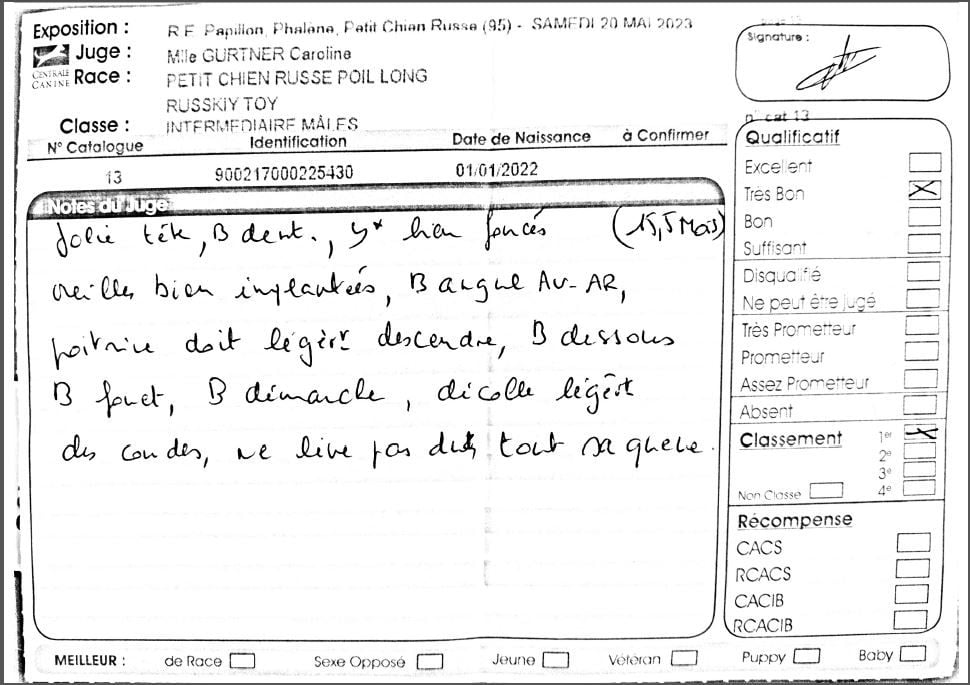 Exposition : R.E. Papillon, Phalène, Petit Chien Russe (95) - SAMEDI 20 MAI 2023
Juge : Mlle GURTNER Caroline
CENTRALE CANINE
Race : PETIT CHIEN RUSSE POIL LONG
RUSSKIY TOY
Classe : INTERMEDIAIRE MÂLES
Signature :
n° cat 13
N° Catalogue Identification Date de Naissance à Confirmer
13 900217000225430 01/01/2022
Notes du Juge
Jolie tête, B dent., yx bien foncés (15,5 Mois)
oreilles bien implantées, B angul AV-AR,
poitrine doit légèrt descendre, B dessous
B fouet, B démarche, décolle légèrt
des coudes, ne live pas du tout sa queue.
Qualificatif
Excellent
Très Bon
Bon
Suffisant
Disqualifié
Ne peut être jugé
Très Prometteur
Prometteur
Assez Prometteur
Absent
Classement 1er
2e
3e
Non Classe 4e
Récompense
CACS
RCACS
CACIB
RCACIB
MEILLEUR : de Race Sexe Opposé Jeune Vétéran Puppy Baby